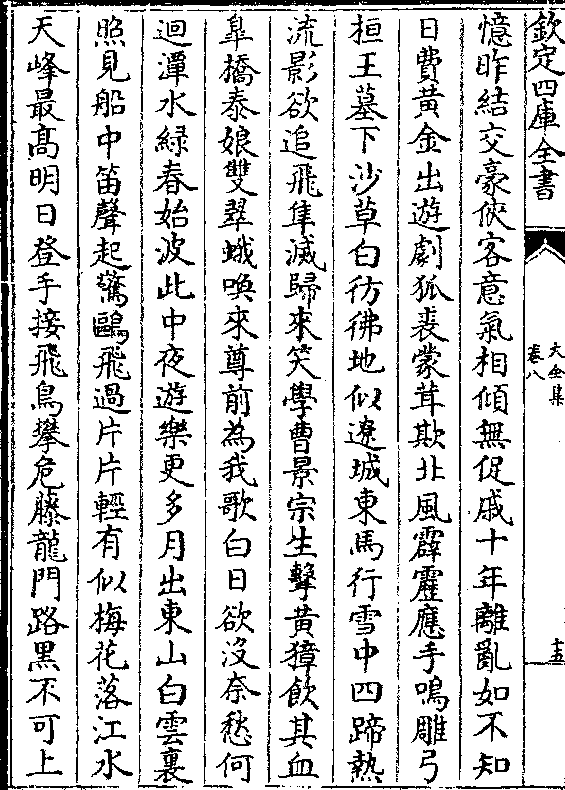 欽定四庫全書
大全集
卷八
十五
憶昨結交豪俠客意氣相傾無促戚十年離亂如不知
日費黄金出遊劇狐裘蒙茸欺北風霹靂應手鳴雕弓
桓王墓下沙草白彷彿地似遼城東馬行雪中四蹄熱
流影欲追飛隼滅歸來笑學曹景宗生擊黄獐飲其血
臯橋泰娘雙翠蛾喚來尊前為我歌白日欲沒奈愁何
迴潭水緑春始波此中夜遊樂更多月出東山白雲裏
照見船中笛聲起驚鷗飛過片片輕有似梅花落江水
天峰最髙明日登手接飛鳥攀危藤龍門路黑不可上